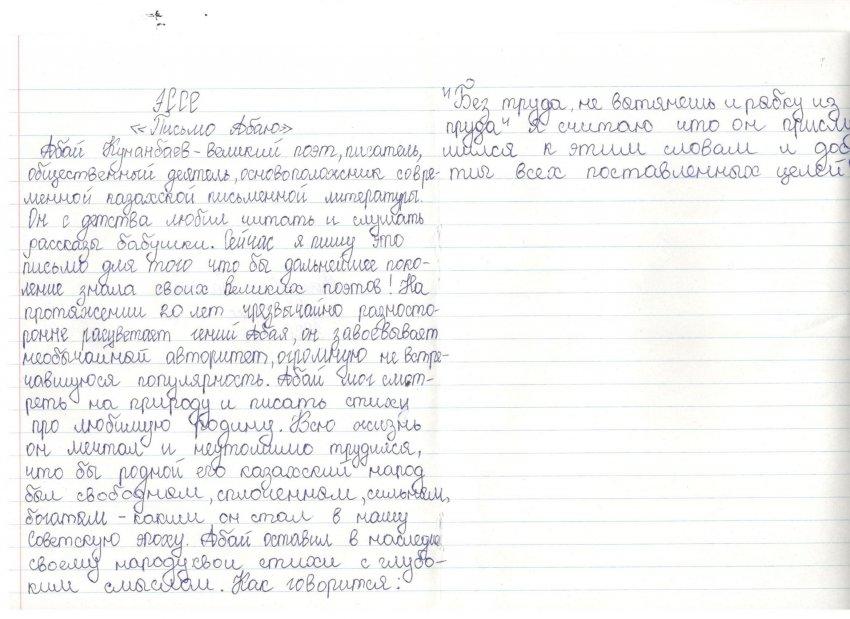 Эссе
«Письмо Абаю»
Абай Кунанбаев - великий поэт, писатель,
общественный деятель, основоположник совре-
менной казахской письменной литературы.
Он с детства любил читать и слушать
рассказы бабушки. Сейчас я пишу это
письмо для того что бы дальнейшее поко-
ление знала своих Великих поэтов! На
протяжении 20 лет чрезвычайно разносто-
ронне расцветает гений Абая, он завоёвывает
необычайный авторитет, огромную не встре-
чавшуюся популярность. Абай мог смот-
реть на природу и писать стихи
про любимую Родину. Всю жизнь
он мечтал и неутомимо трудился,
что бы родной его казахский народ
был свободным, сплоченным, сильным,
богатым - каким он стал в нашу
Советскую эпоху. Абай оставил в наследие
своему народу свои стихи с глубо-
ким смыслом. Как говорится:
"Без труда, не вытянешь и рыбку из
пруда" Я считаю что он прислу
шился к этим словам и дос
тиг всех поставленных целей